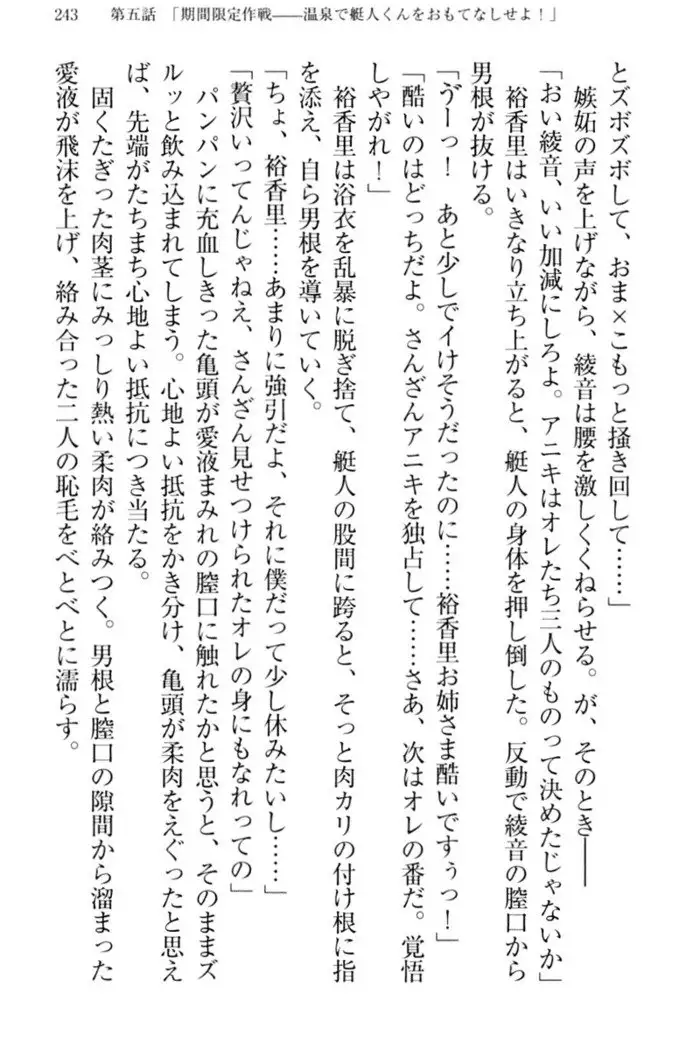 243　第五話　「期間限定作戦――温泉で艇人くんをおもてなしせよ！」
とズボズボして、おま×こもっと掻き回して……」
　嫉妬の声を上げながら、綾音は腰を激しくくねらせる。が、そのとき――
「おい綾音、いい加減にしろよ。アニキはオレたち三人のものって決めたじゃないか」
　裕香里はいきなり立ち上がると、艇人の身体を押し倒した。反動で綾音の膣口から
男根が抜ける。
「ヴーっ！　あと少しでイけそうだったのに……裕香里お姉さま酷いですぅっ！」
「酷いのはどっちだよ。さんざんアニキを独占して……さあ、次はオレの番だ。覚悟
しやがれ！」
　裕香里は浴衣を乱暴に脱ぎ捨て、艇人の股間に跨ると、そっと肉カリの付け根に指
を添え、自ら男根を導いていく。
「ちょ、裕香里……あまりに強引だよ、それに僕だって少し休みたいし……」
「贅沢いってんじゃねえ、さんざん見せつけられたオレの身にもなれっての」
　パンパンに充血しきった亀頭が愛液まみれの膣口に触れたかと思うと、そのままズ
ルッと飲み込まれてしまう。心地よい抵抗をかき分け、亀頭が柔肉をえぐったと思え
ば、先端がたちまち心地よい抵抗につき当たる。
　固くたぎった肉茎にみっしり熱い柔肉が絡みつく。男根と膣口の隙間から溜まった
愛液が飛沫を上げ、絡み合った二人の恥毛をべとべとに濡らす。